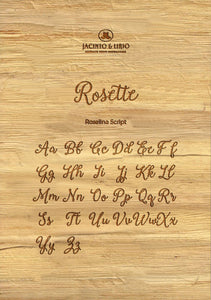 JACINTO & LIRIO
Rosette
Roselina Script
Aa Bb Cc Dd Ee Ff
Gg Hh Ii Jj Kk Ll
Mm Nn Oo Pp Qq Rr
Ss Tt Uu Vv Ww Xx
Yy Zz